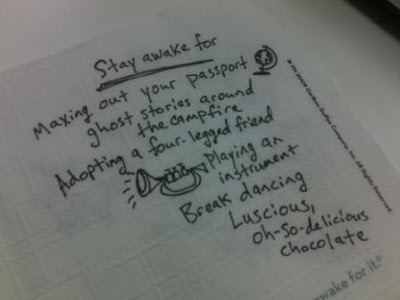 Stay awake for
Maxing out your passport
ghost stories around
the campfire
Adopting a four-legged friend
Playing an
instrument
Break dancing
Luscious,
oh-so-delicious
chocolate
awake for it.®
All Rights Reserved.